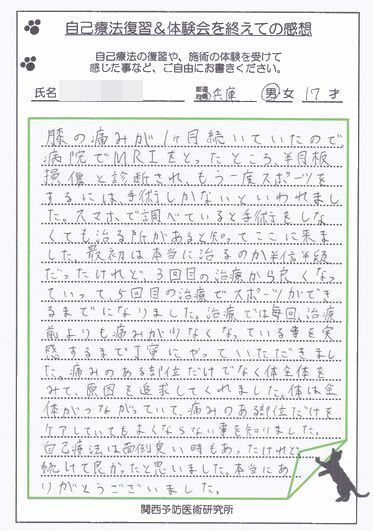 自己療法復習＆体験会を終えての感想
自己療法の復習や、施術の体験を受けて
感じた事など、ご自由にお書きください。
氏名 都道府県 兵庫 男・女 17才
膝の痛みが1ヶ月続いていたので
病院でMRIをとったところ、半月板
損傷と診断され、もう一度スポーツを
するには、手術しかないといわれまし
た。スマホで調べていると手術をしな
くても治る所があると知ってここに来ま
した。最初は本当に治るのか半信半疑
だったけれど、3回目の治療から良くなっ
ていって、5回目の治療でスポーツができ
るまでになりました。治療では毎回、治療
前よりも痛みが少なくなっている事を実
感するまで丁寧にやっていただきまし
た。痛みのある部位だけでなく体全体を
みて、原因を追求してくれました。体は全
体がつながっていて、痛みのある部位だけを
ケアしていてもよくならない事を知りました。
自己療法は面倒臭い時もあったけれど、
続けて良かったと思いました。本当にあ
りがとうございました。
関西予防医術研究所